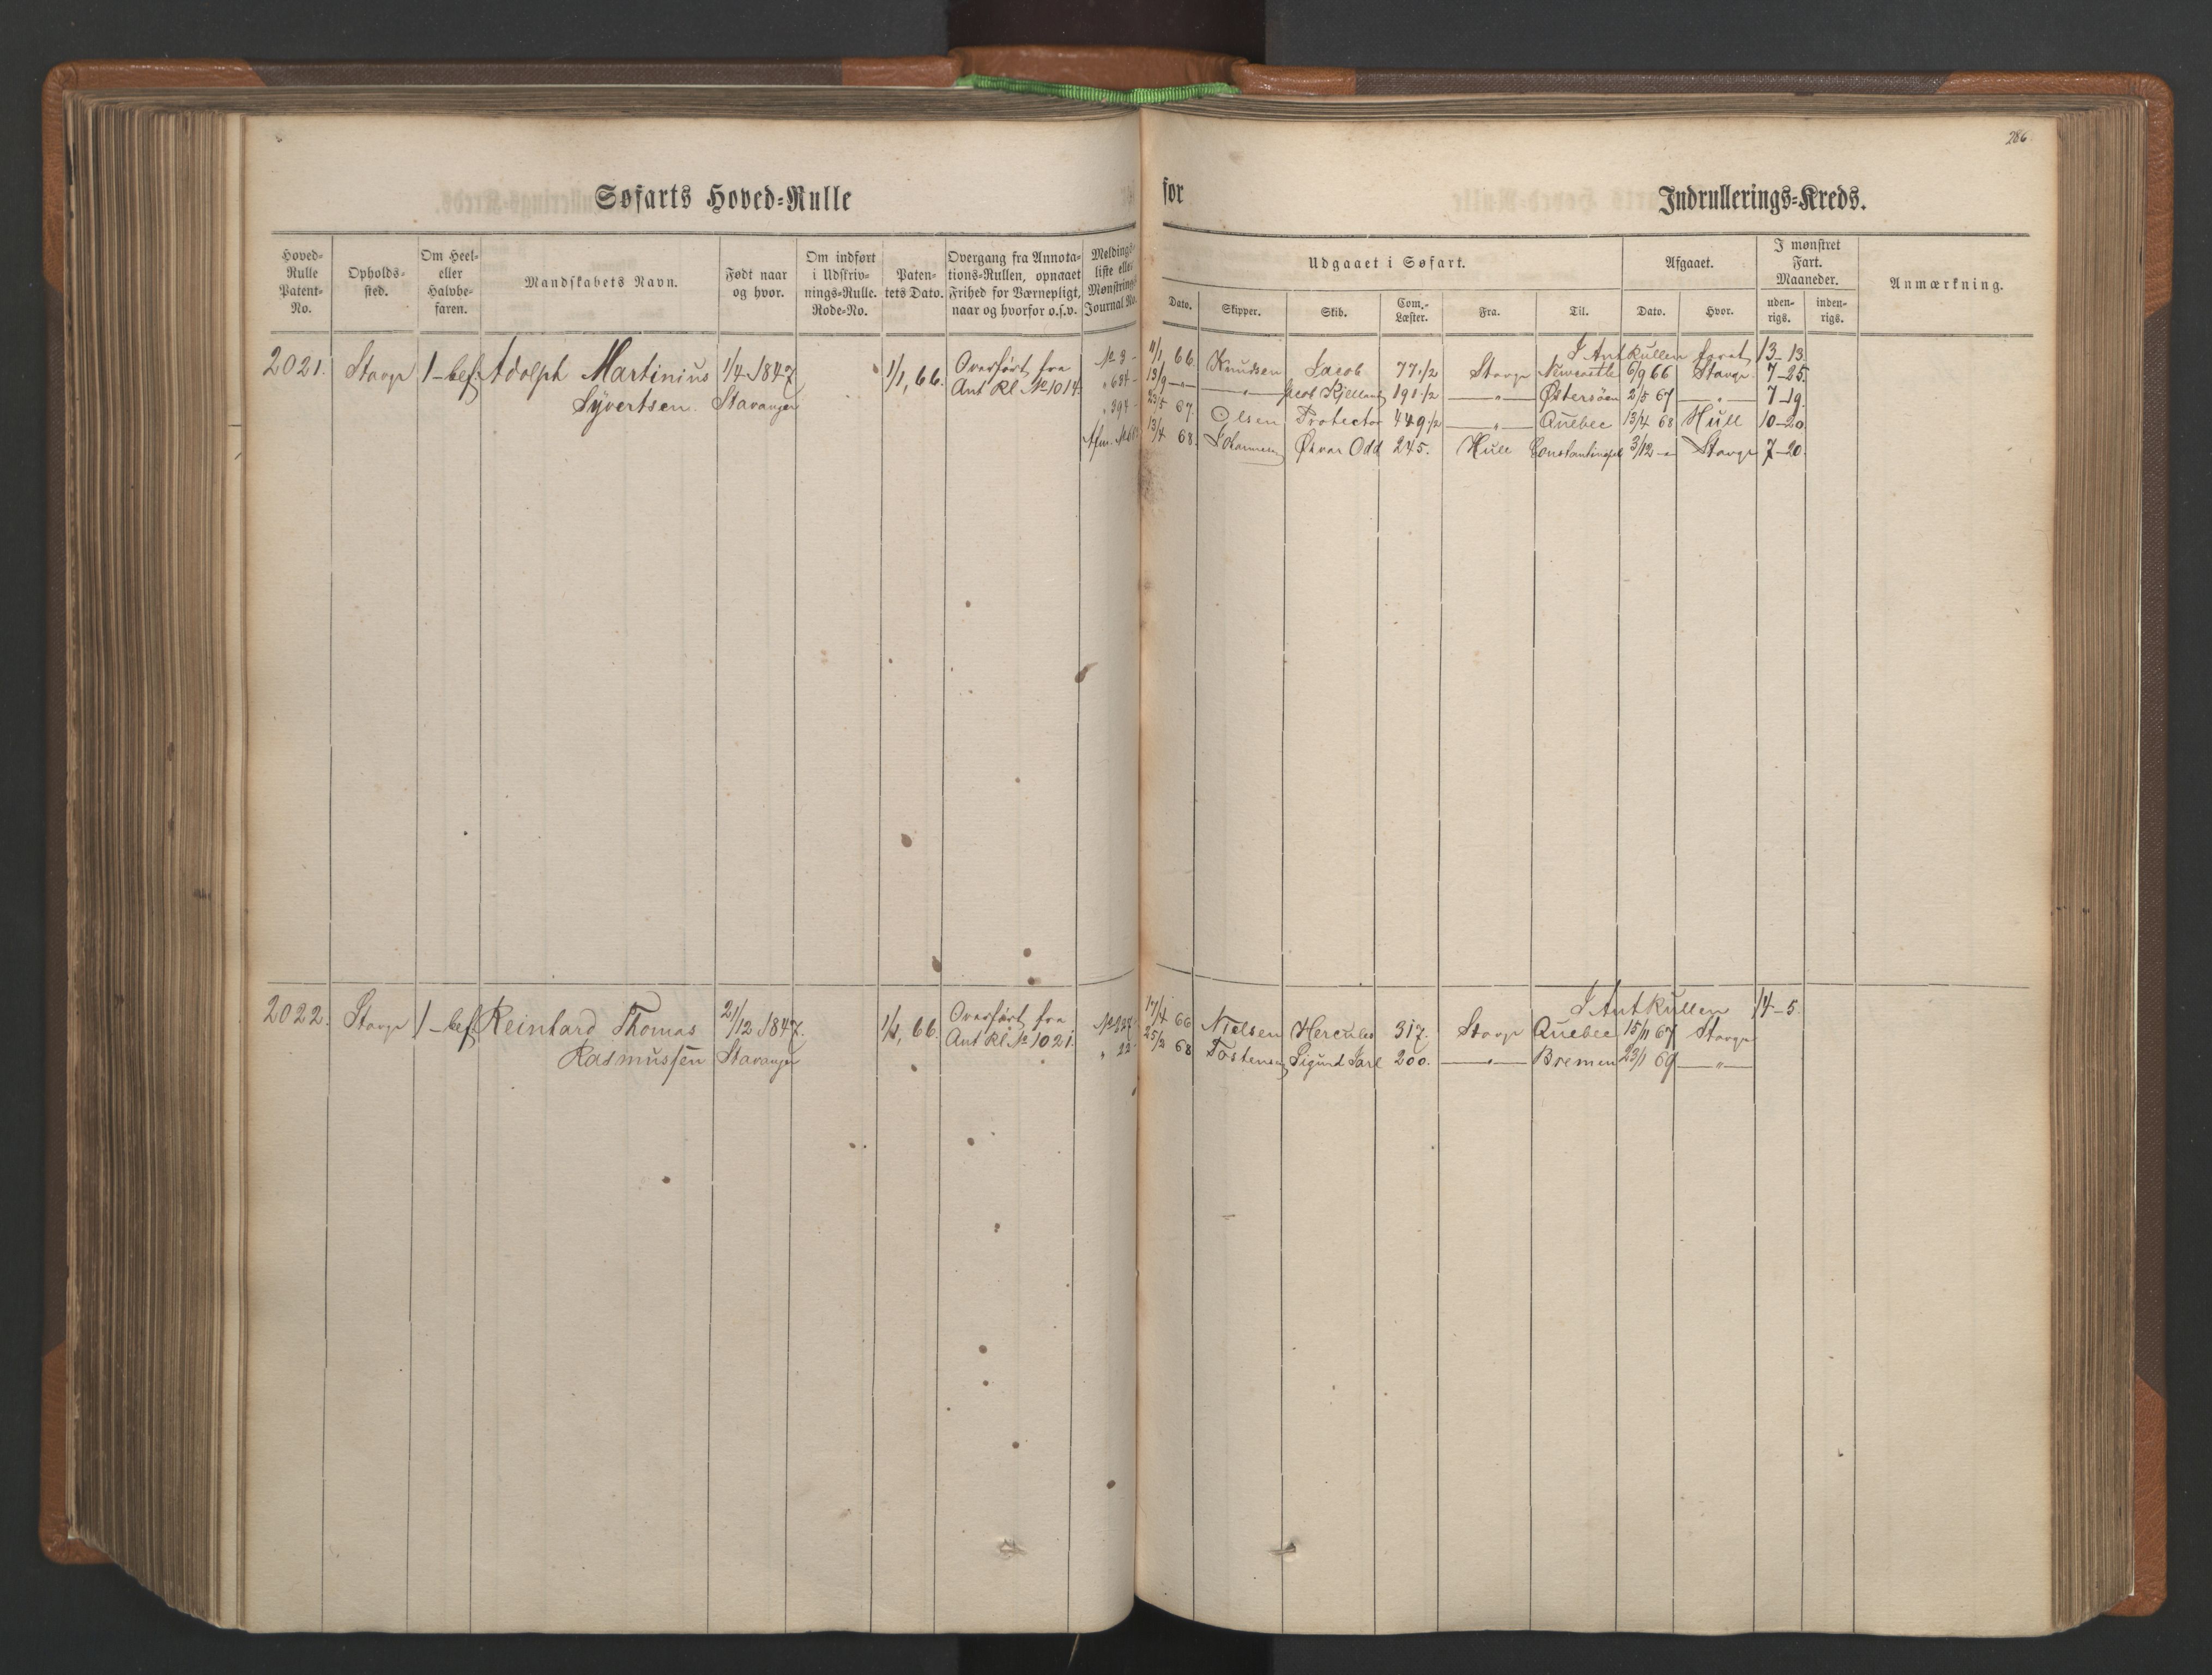 286.
Søfarts Hoved-Rulle for Indrullerings-Kreds.
Hoved-Rulle Patent-No.
Opholds-sted.
Om Heel- eller Halvbe-faren.
Mandskabets Navn.
Født naar og hvor.
Om indført i Udskriv-nings-Rulle. Rode-No.
Paten-tets Dato.
Overgang fra Annota-tions-Rullen, opnaaet Frihed for Værnepligt, naar og hvorfor o.s.v.
Meldings-liste eller Mønstrings-Journal No.
Udgaaet i Søfart.
Dato. Skipper. Skib. Com.-Læster. Fra. Til.
Afgaaet.
Dato. Hvor.
I mønstret Fart. Maaneder.
uden-rigs. inden-rigs.
Anmærkning.
I Ant Rullen faret 13-13.
2021. Stavgr 1-bef. Adolph Martinius 1/4 1847 1/1, 66. Overført fra № 3- 11/1 66 Knudsen Jacob 77 1/2 Stavgr Newcastle 6/9 66 Stavgr 7-25.
Syvertsen. Stavanger Ant Rl № 1014. " 634- 13/9 -"- -"- Jacob Kjelland 191 1/2 -"- Østersøen 2/5 67 -"- 7-19.
" 394- 23/5 67. Olsen Protector 449 1/2 -"- Quebec 13/4 68 Hull 10-20
13/4 68. Johannesen Ørvar Odd 245. Hull Constantinopel 3/12 -"- Stavgr 7-20.
I Ant Rullen 14-5.
2022. Stavgr 1-bef. Reinhard Thomas 21/12 1847. 1/1, 66. Overført fra 17/4 66 Nielsen Hercules 317. Stavgr Quebec 15/11 67 Stavgr
Rasmussen Stavanger Ant Rl № 1021. " 22- 25/3 68 Tostensen Sigurd Jarl 200. -"- Bremen 23/1 69 -"-